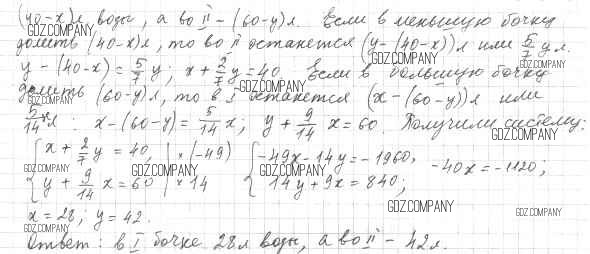 (40-x)л воды, а во II – (60-y)л. Если в меньшую бочку
долить (40-x)л, то во II останется (y-(40-x))л или 5/7 y л.
y - (40-x) = 5/7 y; x + 2/7 y = 40. Если в большую бочку
долить (60-y)л, то в I останется (x-(60-y))л или
5/14 x л : x-(60-y) = 5/14 x; y + 9/14 x = 60 Получили систему:
{ x + 2/7 y = 40, | × (-49) { -49x - 14y = -1960, -40x = -1120;
{ y + 9/14 x = 60 | × 14 { 14y + 9x = 840;
x = 28; y = 42.
Ответ: в I бочке 28л воды, а во II – 42л.
GDZ.COMPANY
GDZ.COMPANY
GDZ.COMPANY
GDZ.COMPANY
GDZ.COMPANY
GDZ.COMPANY
GDZ.COMPANY
GDZ.COMPANY
GDZ.COMPANY
GDZ.COMPANY
GDZ.COMPANY